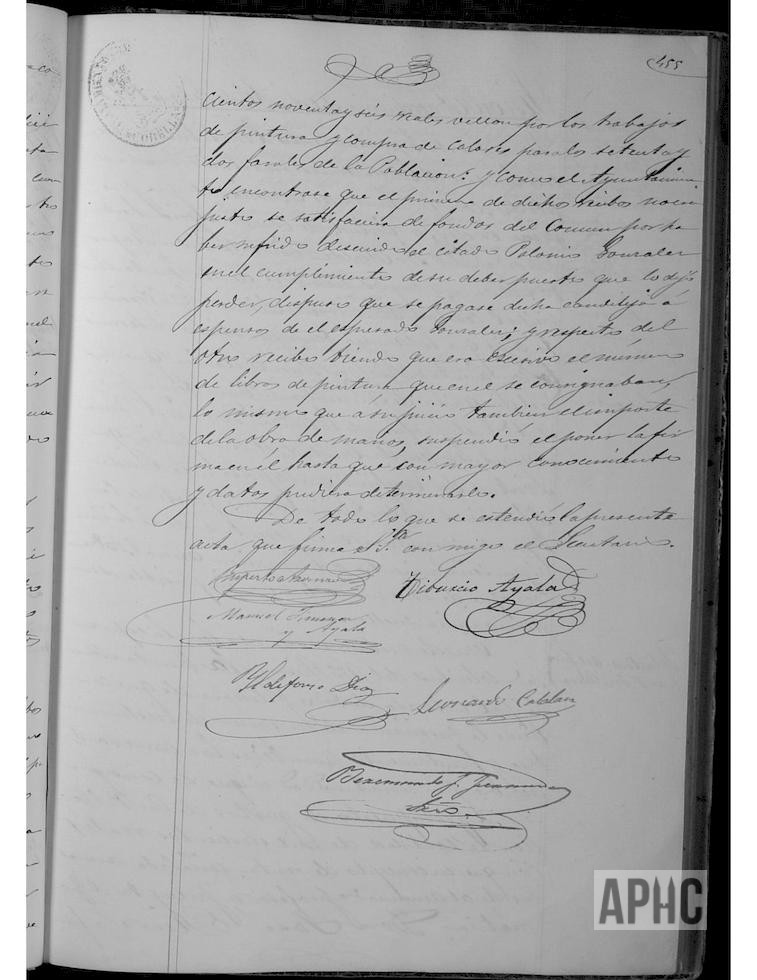 455
cientos noventa y seis reales vellon por los trabajos
de pintura y compra de colores para los setenta y
dos faroles de la Poblacion: y como el Ayuntamien
to encontrase que el primero de dicho recibos no era
justo se satisfaciera de fondos del Comun por ha
ber sufrido descuido el citado Polonio Gonzalez
en el cumplimiento de su deber puesto que lo dejó
perder, dispuso que se pagase dicha candileja á
espensas de el espresado Gonzalez; y respecto del
otro recibo viendo que era escesivo el número
de libras de pintura que en el se consignaban,
lo mismo que á su juicio tambien el importe
de la obra de manos, suspendió el poner la fir
ma en él hasta que con mayor conocimiento
y datos pudiera determinarlo.
De todo lo que se estendió la presente
acta que firma S.S.ª con migo el Secretario.
Tiburcio Ayala
Manuel Jimenez
y Ayala
Yldefonso Diaz
Leonardo Catalan
Bexemundo J.
Srio.
APHC